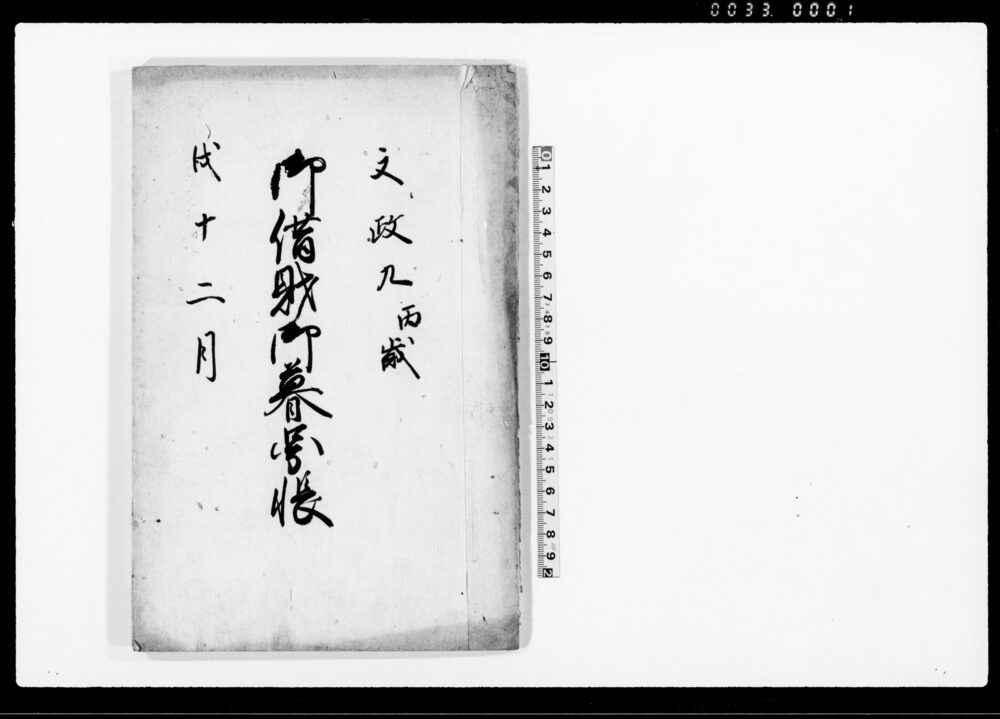 0033 0001
文政九丙歳
御借財御暮帳
戌十二月
0 1 2 3 4 5 6 7 8 9 10 1 2 3 4 5 6 7 8 9 2